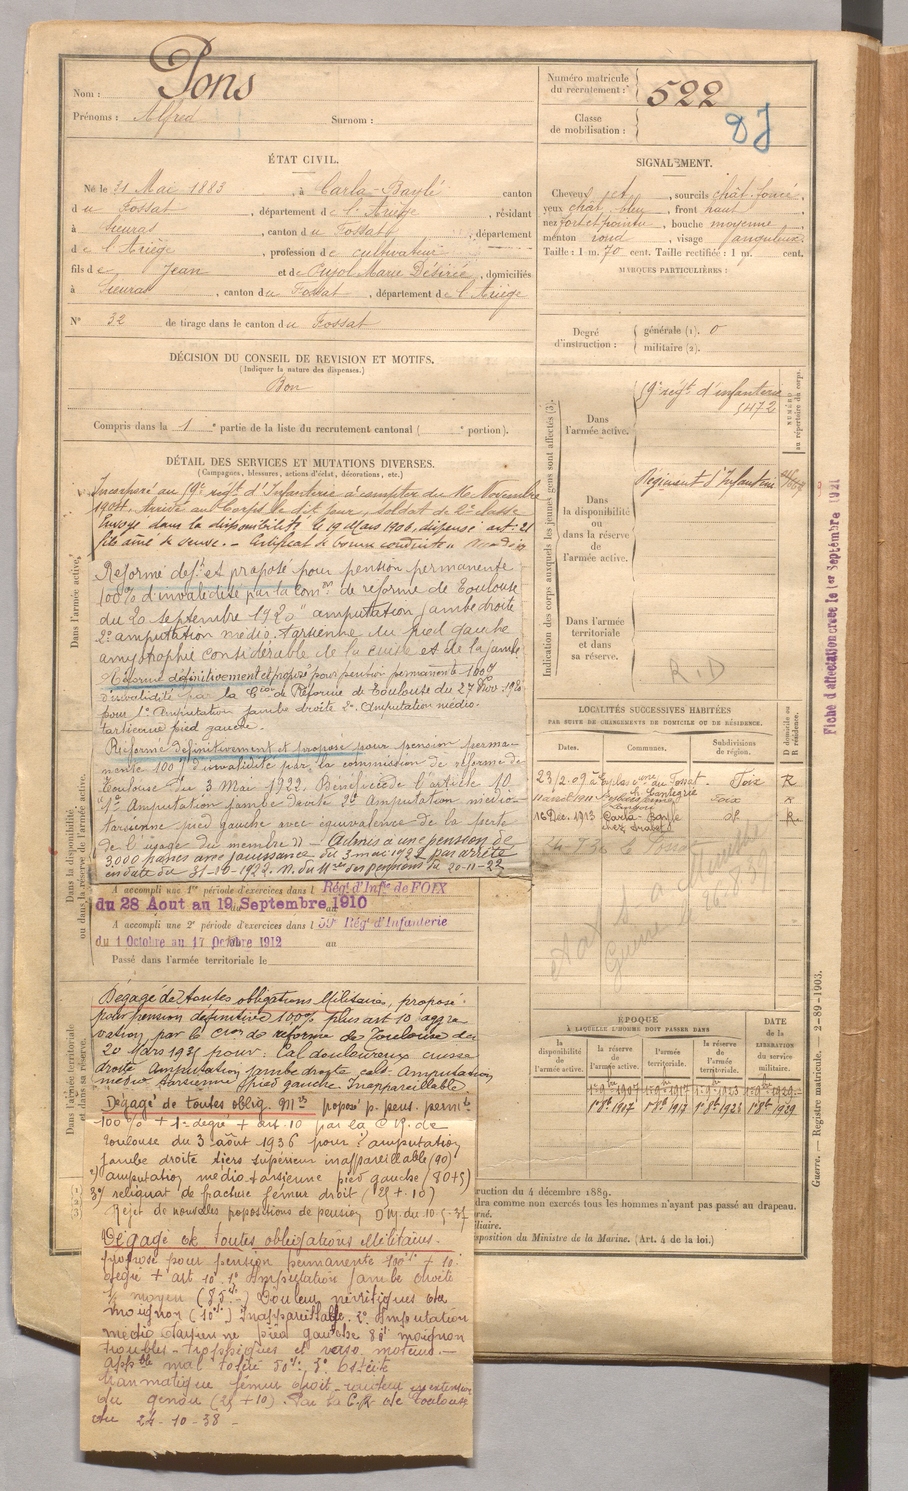 Nom : Pons
Prénoms : Alfred Surnom :
Numéro matricule
du recrutement : 522
Classe
de mobilisation :
ÉTAT CIVIL.
Né le 31 Mai 1883, à Carla-Bayle canton
du Fossat, département de l'Ariège, résidant
à Sieuras, canton du Fossat, département
de l'Ariège, profession de cultivateur
fils de Jean et de Pujol Marie Désirée, domiciliés
à Sieuras, canton du Fossat, département de l'Ariège
N° 32 de tirage dans le canton du Fossat
SIGNALEMENT.
Cheveux jet, sourcils chât. foncé,
yeux chât. bleu, front haut,
nez fort et pointu, bouche moyenne,
menton rond, visage anguleux.
Taille : 1 m. 70 cent. Taille rectifiée : 1 m. cent.
MARQUES PARTICULIÈRES :
Degré
d'instruction :
générale (1). 0
militaire (2).
DÉCISION DU CONSEIL DE REVISION ET MOTIFS.
(Indiquer la nature des dispenses.)
Bon
Compris dans la 1e partie de la liste du recrutement cantonal ( e portion).
DÉTAIL DES SERVICES ET MUTATIONS DIVERSES.
(Campagnes, blessures, actions d'éclat, décorations, etc.)
Dans l'armée active.
Incorporé au 59e régt d'Infanterie à compter du 16 Novembre
1904. Arrivé au Corps le dit jour, soldat de 2e classe
Envoyé dans la disponibilité le 19 Mars 1906, dispensé art. 21
fils aîné de veuve. - Certificat de bonne conduite
Réformé déf. et proposé pour pension permanente
100% d'invalidité par la Comon de réforme de Toulouse
du 20 septembre 1920 amputation jambe droite
2° amputation médio-tarsienne du pied gauche
amyotrophie considérable de la cuisse et de la jambe
Réformé définitivement et proposé pour pension permanente 100%
d'invalidité par la Con de Réforme de Toulouse du 27
pour 1° Amputation jambe droite 2° Amputation médio-
tarsienne pied gauche.
Réformé définitivement et proposé pour pension perma-
nente 100% d'invalidité par la commission de réforme de
Toulouse du 3 Mai 1922. Bénéficie de l'article 10.
1° Amputation jambe droite 2° Amputation médio-
tarsienne pied gauche avec équivalence de la perte
de l'usage du membre. Admis à une pension de
3.000 francs avec jouissance du 3 mai 1922 par arrêté
en date du 31-10-1922. N. du Mtre des pensions du 20-11-22
Dans la disponibilité
ou dans la réserve de l'armée active.
A accompli une 1re période d'exercices dans l Rég. d'Infie de FOIX
du 28 Aout au 19 Septembre 1910
A accompli une 2e période d'exercices dans l 59e Régt d'Infanterie
du 1 Octobre au 17 Octobre 1912 au
Passé dans l'armée territoriale le
Dans l'armée territoriale
et dans sa réserve.
Dégagé de toutes obligations Militaires, proposé
pour pension définitive 100% plus art 10 aggra
vation par la Cion de réforme de Toulouse du
20 Mars 1935 pour : Cal douloureux cuisse
droite Amputation jambe droite Amputation
médio tarsienne pied gauche. Inappareillable
Dégagé de toutes oblig. Mres proposé p. pens. permte
100% + 1er degré + art. 10 par la C.R. de
Toulouse du 3 août 1936 pour 1° amputation
jambe droite tiers supérieur inappareillable (90)
2°) amputation médio-tarsienne pied gauche (80+5)
3°) reliquat de fracture fémur droit (25 + 10)
Rejet de nouvelles propositions de pension D.M. du 10-5-37
Dégagé de toutes obligations Militaires.
proposé pour pension permanente 100% + 10
degré + art 10. 1° Amputation jambe droite
1/3 moyen (85%) Douleur névritiques du
moignon (10%) Inappareillable. 2° Amputation
médio tarsienne pied gauche moignon
troubles trophiques et vaso moteurs.-
mal toléré 3° Ostéite
traumatique fémur droit raideur en extension
du genou (25 + 10). Par la C.R. de Toulouse
du 24-10-38 -
Indication des corps auxquels les jeunes gens sont affectés (3).
Dans
l'armée active.
59e régt d'infanterie
5472
NUMÉRO
au répertoire du corps.
Dans
la disponibilité
ou
dans la réserve
de
l'armée active.
Régiment d'Infanterie
Dans l'armée
territoriale
et dans
sa réserve.
R.D
Fiche d'affectation créée le 1er Septembre 1921
LOCALITÉS SUCCESSIVES HABITÉES
PAR SUITE DE CHANGEMENTS DE DOMICILE OU DE RÉSIDENCE.
Dates. Communes. Subdivisions
de région. D domicile ou
R résidence.
23/2.09 du Fossat Foix R
Foix R
16 Déc. 1913 Carla-Bayle do R
ÉPOQUE
À LAQUELLE L'HOMME DOIT PASSER DANS
la
disponibilité
de
l'armée active.
la réserve
de
l'armée
active.
l'armée
territoriale.
la réserve
de
l'armée
territoriale.
DATE
de la
LIBÉRATION
du service
militaire.
1er 8bre 1907 1er 8bre 1917 1er 8bre 1923 1er 8bre 1929
Guerre. — Registre matricule. — 2-89-1903.
ruction du 4 décembre 1889.
dra comme non exercés tous les hommes n'ayant pas passé au drapeau.
erné.
iliaire.
sposition du Ministre de la Marine. (Art. 4 de la loi.)